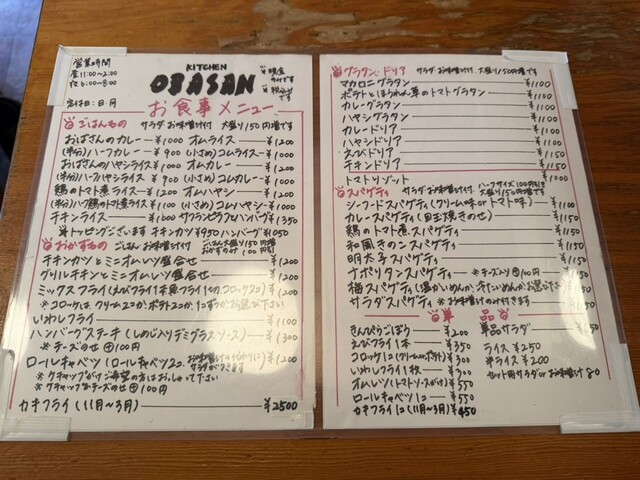 営業時間
昼11:00〜2:00
夜6:00〜8:00
定休日:日・月
KITCHEN
OBASAN
※現金のみです
※税込みです
お食事メニュー
ごはんもの サラダ お味噌汁付 大盛り150円増です
おばさんのカレー ¥1000 オムライス ¥1200
(半分)ハーフカレー ¥900 (小さめ)コムライス ¥1000
おばさんのハヤシライス ¥1000 オムカレー ¥1200
(半分)ハーフハヤシライス ¥900 (小さめ)コムカレー ¥1000
鶏のトマト煮ライス ¥1200 オムハヤシ ¥1200
(半分)ハーフ鶏のトマト煮ライス ¥1100 (小さめ)コムハヤシ ¥1000
チキンライス ¥1000 サフランピラフとハンバーグ ¥1350
★トッピングございます チキンカツ¥950 ハンバーグ¥1050
おかずもの ごはん お味噌汁付 ごはん大盛り150円増 おかずのみ100円引
チキンカツとミニオムレツ盛合せ ¥1200
グリルチキンとミニオムレツ盛合せ ¥1200
ミックスフライ
※コロッケは、クリーム2コか、ポテト2コか、1コずつかお選び下さい
いわしフライ ¥1100
ハンバーグステーキ(しめじ入りデミグラスソース) ¥1300
※チーズのせ⊕100円
ロールキャベツ(ロールキャベツ2コ ¥1200
※ケチャップがけご希望の方はおっしゃって下さい
※ケチャップかチーズのせ⊕100円
カキフライ(11月〜3月) ¥2500
グラタン・ドリア サラダ お味噌汁付 大盛り150円増です
マカロニグラタン ¥1100
ポテトとほうれん草のトマトグラタン ¥1100
カレーグラタン ¥1100
ハヤシグラタン ¥1100
カレードリア ¥1100
ハヤシドリア ¥1100
えびドリア ¥1150
チキンドリア ¥1150
トマトリゾット ¥1000
スパゲティ サラダ お味噌汁付 ハーフサイズ100円引き 大盛り150円増です
シーフードスパゲティ(クリーム味orトマト味) ¥1150
カレースパゲティ(目玉焼きのせ) ¥1150
鶏のトマト煮スパゲティ ¥1150
和風きのこスパゲティ ¥1150
明太子スパゲティ ¥1150
ナポリタンスパゲティ ※チーズ入り⊕100円 ¥1150
梅スパゲティ(温かいめんか、冷たいめんか、お選び下さい)
サラダスパゲティ ※お味噌汁のみ付きます
単品
きんぴらごぼう ¥200 単品サラダ
えびフライ1本 ¥350 ライス ¥250
コロッケ1コ(クリームorポテト) ¥300 半ライス ¥200
いわしフライ1枚 ¥300 セット用サラダorお味噌汁 80
オムレツ(トマトソースがけ) ¥550
ロールキャベツ1コ ¥550
カキフライ1コ(11月〜3月) ¥450